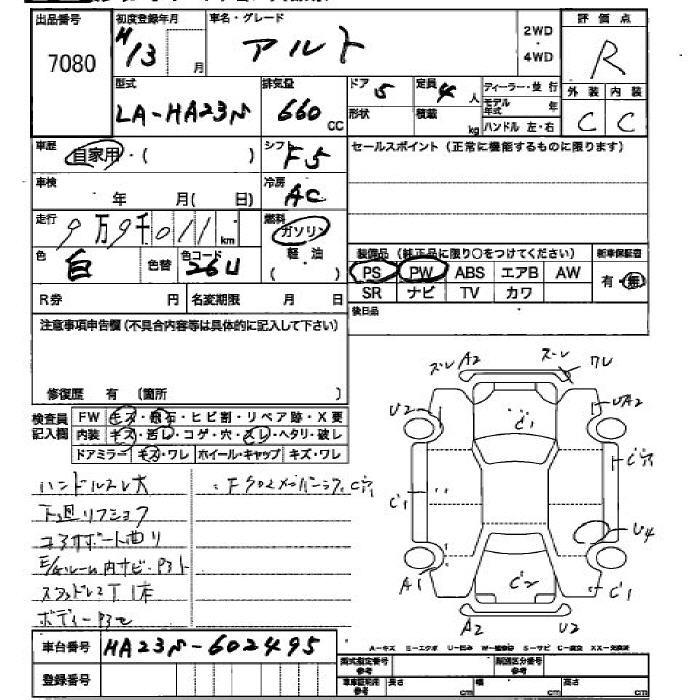 出品番号 初度登録年月 車名・グレード 2WD 評価点
7080 H/13 月 アルト 4WD R
型式 排気量 ドア 5 定員 4人 ディーラー・並行 外装 内装
LA-HA23V 660 CC 形状 積載 kg モデル年式 年 C C
ハンドル 左・右
車歴 自家用・( ) シフト F5 セールスポイント(正常に機能するものに限ります)
車検 年 月( 日) 冷房 AC
走行 9万9千011km 燃料 ガソリン
色 白 色替 色コード 26U 軽油
( )
装備品(純正品に限り○をつけてください) 新車保証書
PS PW ABS エアB AW 有・無
SR ナビ TV カワ
R券 円 名変期限 月 日 後日品
注意事項申告欄(不具合内容等は具体的に記入して下さい)
修復歴 有 (箇所 )
検査員記入欄 FW キズ・飛石・ヒビ割・リペア跡・X要
内装 キズ・汚レ・コゲ・穴・スレ・ヘタリ・破レ
ドアミラー キズ・ワレ ホイール・キャップ キズ・ワレ
ハンドルスレ大
下廻リフショク
コアサポート曲り
E/Gルーム内サビ・
スタッドレスT1本
ボディー
ズレ A2 ズレ ワレ
U2 C1 UA2
C1 C穴
U4
A1 C2 C1
A2 U2
車台番号 HA23V-602495
登録番号
A-キズ E-エクボ U-凹み W-補修跡 S-サビ C-腐食 XX-交換済
型式指定番号 参考 類別区分番号 参考
車車証明用 参考 長さ cm 幅 cm 高さ cm